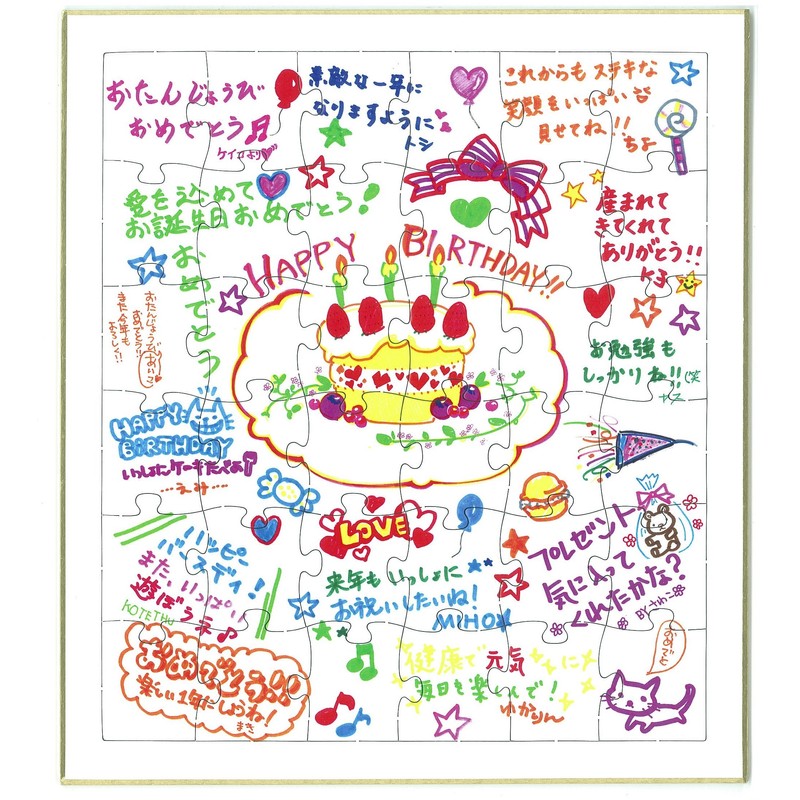 おたんじょうび
おめでとう
ケイコより
素敵な一年に
なりますように
トシ
これからも ステキな
笑顔をいっぱい
見せてね!!
ちよ
愛を込めて
お誕生日おめでとう!
おめでとう
産まれて
きてくれて
ありがとう!!
ケ子
HAPPY BIRTHDAY!!
おたんじょうび
おめでとう!!
また今年も
よろしく!!
あいこ
お勉強も
しっかりね!!(笑
HAPPY
BIRTHDAY
いっしょにケーキたべよ
...えみ...
LOVE
ハッピー
バースディ!
また、いっぱい
遊ぼうネ♪
KOTETHU
来年もいっしょに
お祝いしたいね!
MIHO
プレゼント
気に入って
くれたかな?
BY
おめでとう!!
楽しい1年にしようね!
まき
健康で 元気に
毎日を楽しんで!
ゆかりん
おめでと